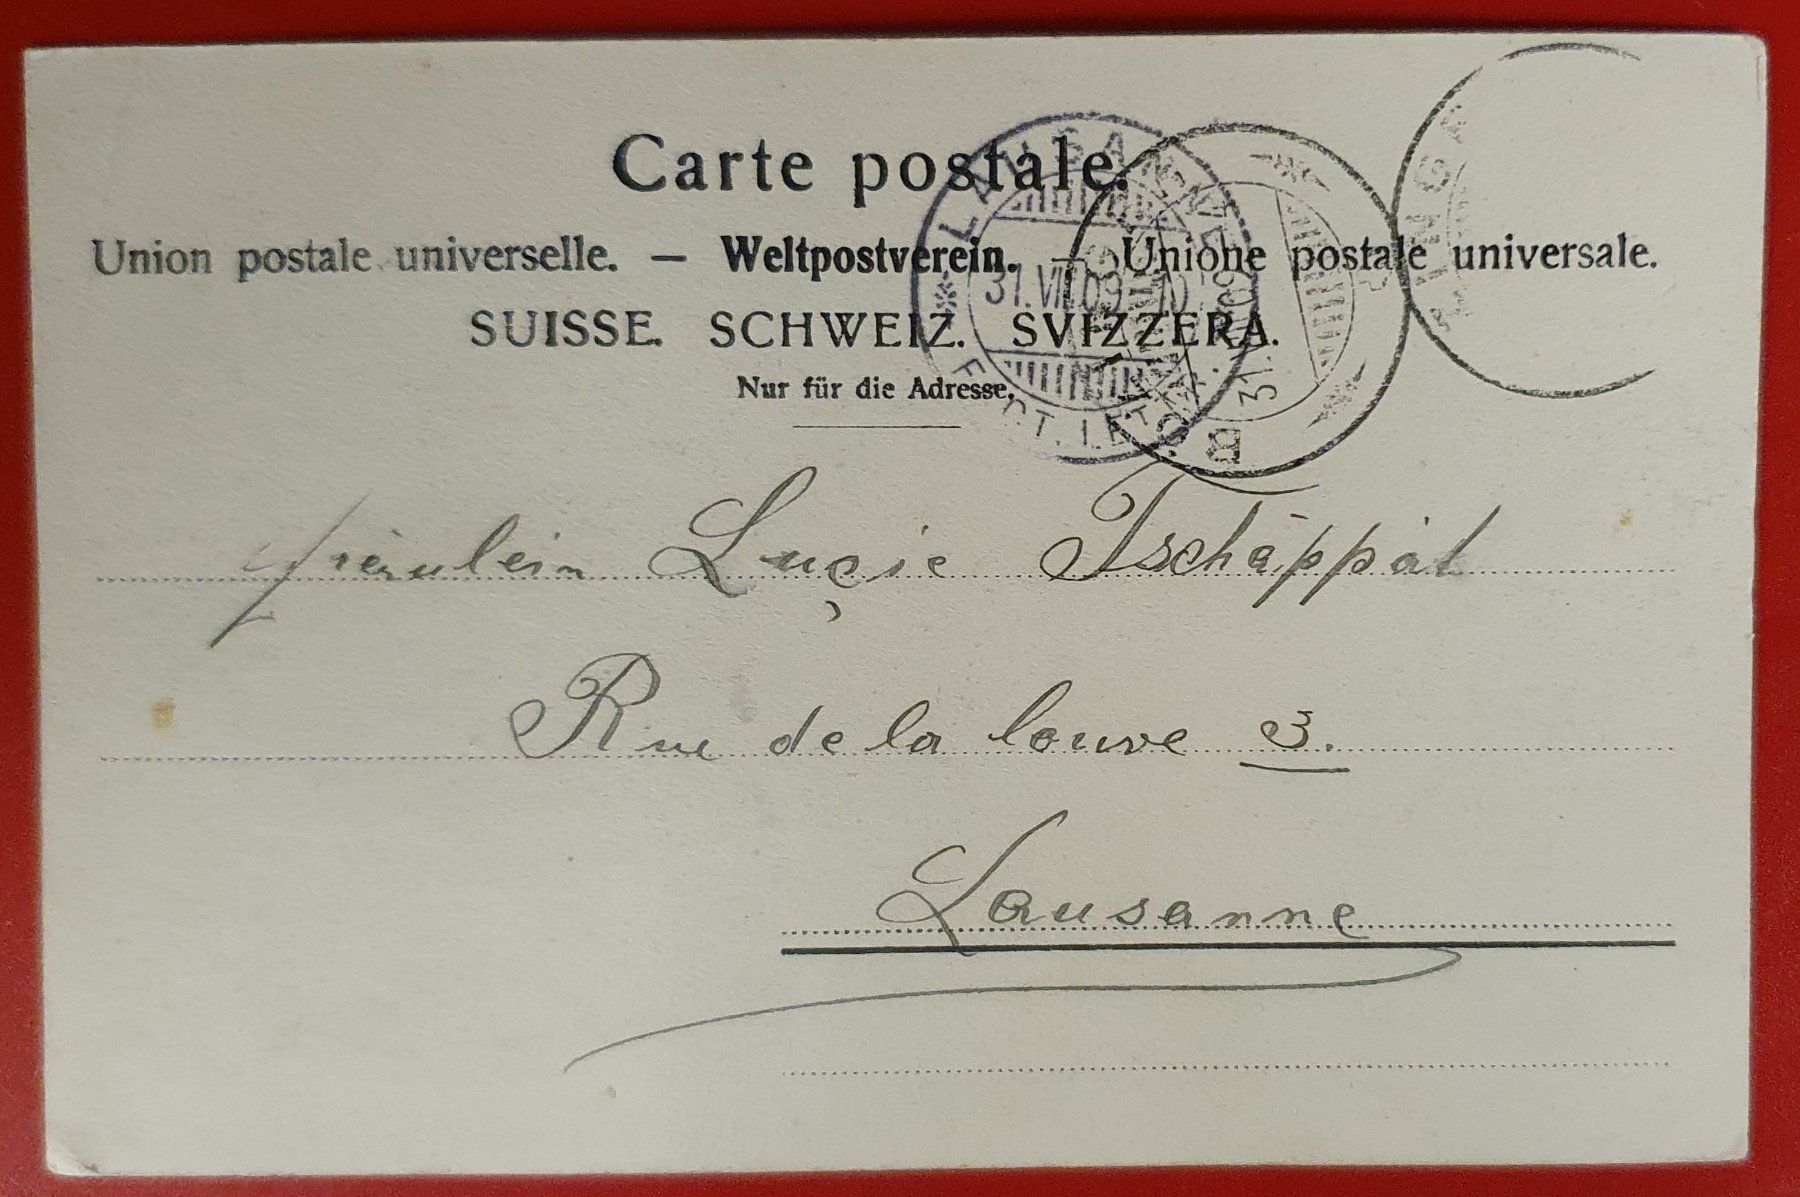 Carte postale.
Union postale universelle. — Weltpostverein. — Unione postale universale.
SUISSE. SCHWEIZ. SVIZZERA.
Nur für die Adresse.
LAUSANNE
31.VII.09
EXP. LET.
31.
Fräulein Luçie Tschäppät
Rue de la louve 3.
Lausanne